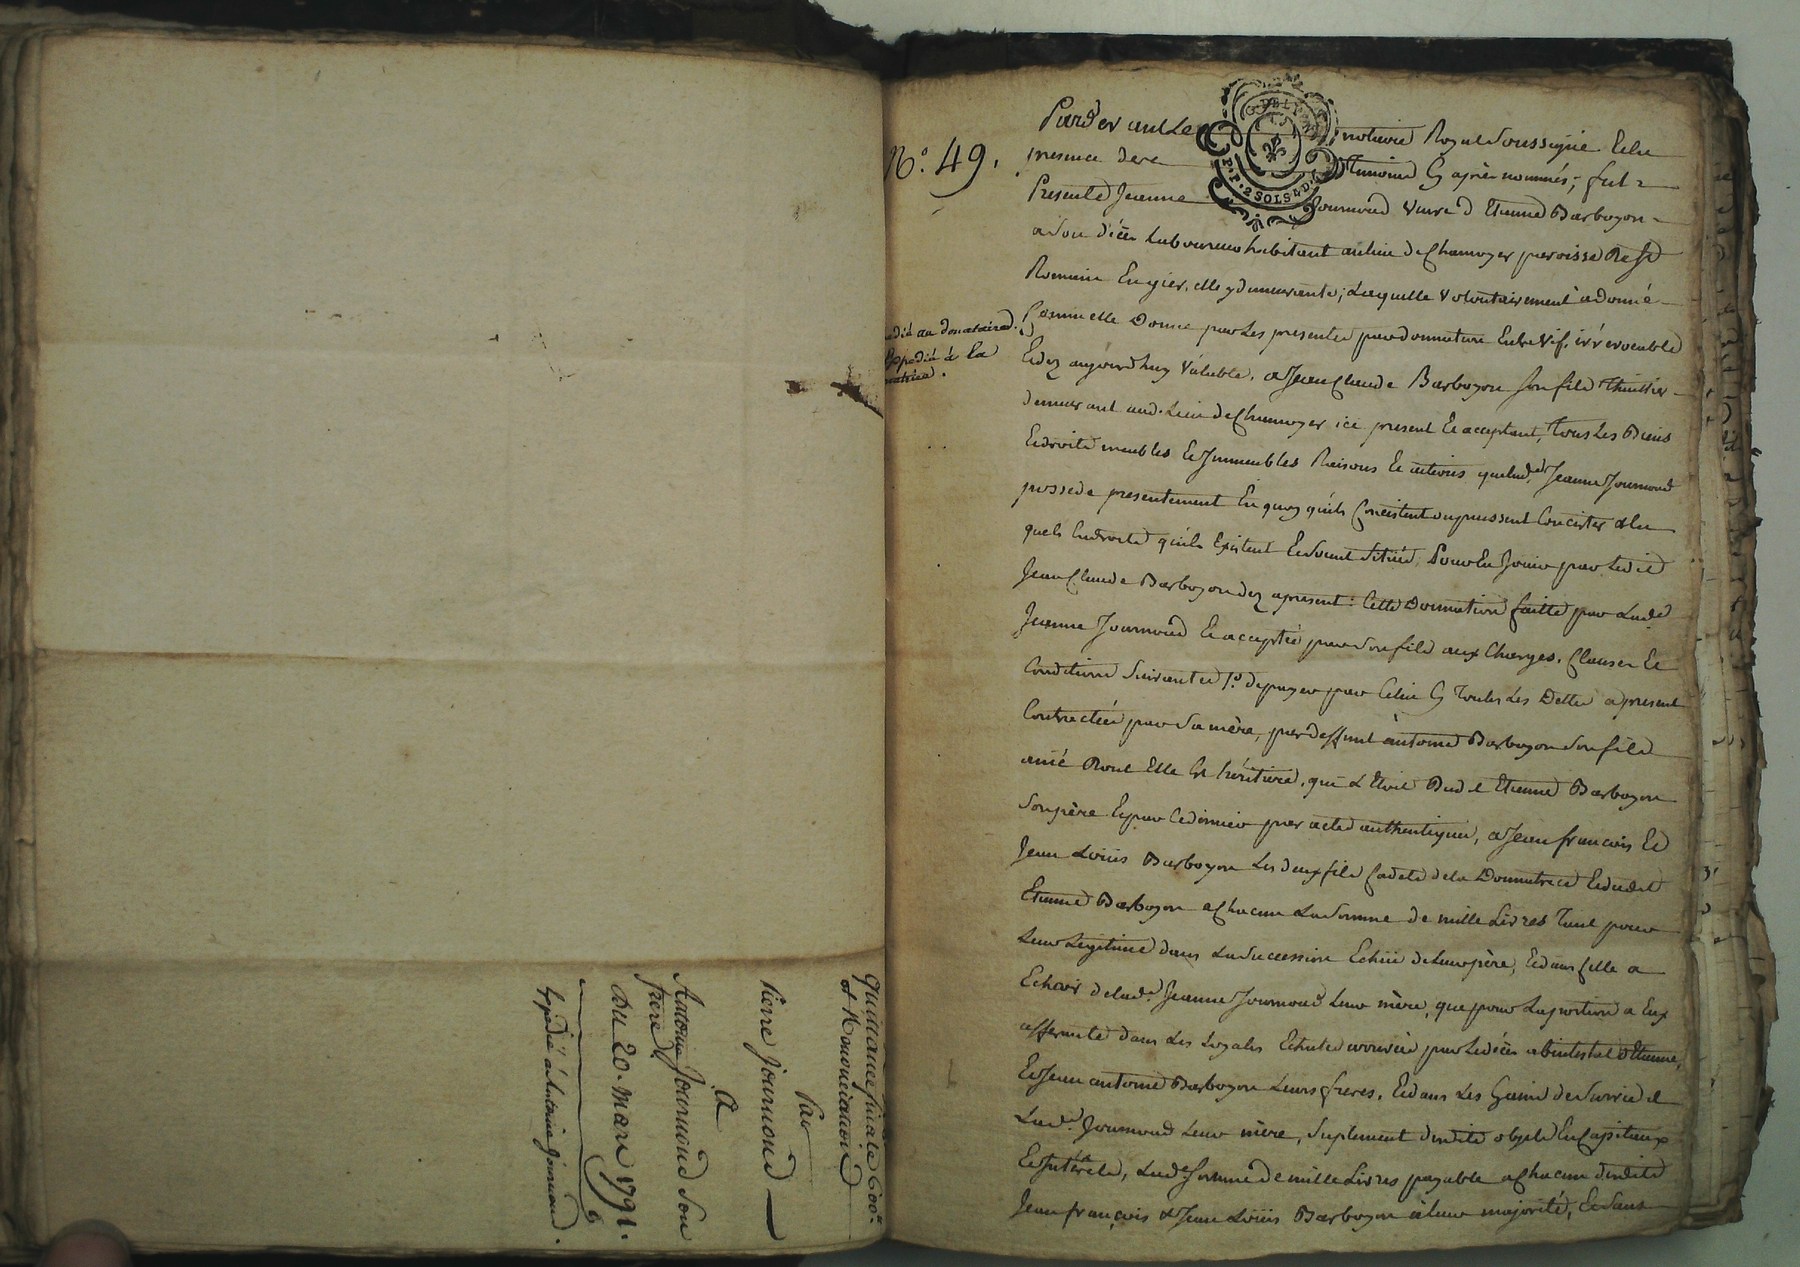 quittance finale 600#
et renonciation
Par
Pierre Journoud
A
Antoine Journoud Son
frere
Du 20. mars 1791.
Expédié à Antoine Journoud.
N.° 49.
expédié au donataire.
Expédié à la
donatrice.
G. DE LYON
P.P. 2 SOLS 4 D.
Pardevant Le notaire Royal Soussigné Et en
presence de ce temoins Cy après nommés; fut
Presente Jeanne Journoud veuve d'Etienne Barboyon
a son décès laboureur habitant au lieu de Chamoyer paroisse de St
Romain En gier, elle y demeurante; Laquelle volontairement a donné
Comme elle Donne par Les presentes par donnation Entre vif, irrévocable
Et dez aujourd'huy valable, a Jean Claude Barboyon son fils thuillier
demeurant aud. Lieu de Chamoyer ici present Et acceptant, tous Les Biens
Et droits meubles Et Immeubles Raisons Et actions que lad.e Jeanne Journoud
possede presentement En quoy qu'ils Consistent ou puissent Concister & En
quels Endroits qu'ils Existent Et soient situés, Pour En Jouir par Ledit
Jean Claude Barboyon dez apresent: Cette Donnation faitte par Lade
Jeanne Journoud Et acceptée par Son fils aux Charges, Clauses Et
Conditions Suivantes 1.° de payer par Celui Cy Toutes Les Dettes a present
Contractées par Sa mère, par deffunt antoine Barboyon Son fils
ainé Dont Elle Est héritière, qui L'Etoit Dudit Etienne Barboyon
Son père Et par Ce dernier par actes authentiques, a Jean françois Et
Jean Loüis Barboyon Les deux fils Cadets de la Donnatrice Et dudit
Etienne Barboyon a Chacun La Somme de mille Livres Tant pour
Leur Legitime dans La Succession Echüe de Leur père, Et dans Celle a
Echoir de lad.e Jeanne Journoud Leur mère, que pour La portion a Eux
afferente dans Les Legales Echutes ouvertes par Le décès abintestat d'Etienne,
Et Jean antoine Barboyon Leurs freres, Et dans Les Gains de Survie de
Lad.e Journoud Leur mère, Suplement desdits objets En Capitaux
Et Interets, Lade Somme de mille Livres payable a Chacun desdits
Jean françois & Jean Loüis Barboyon à Leur majorité, Et Sans